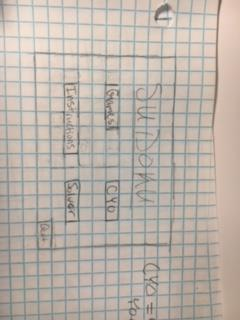 SUDOKU
Games CYO
Instructions Solver
Quit
CYO =